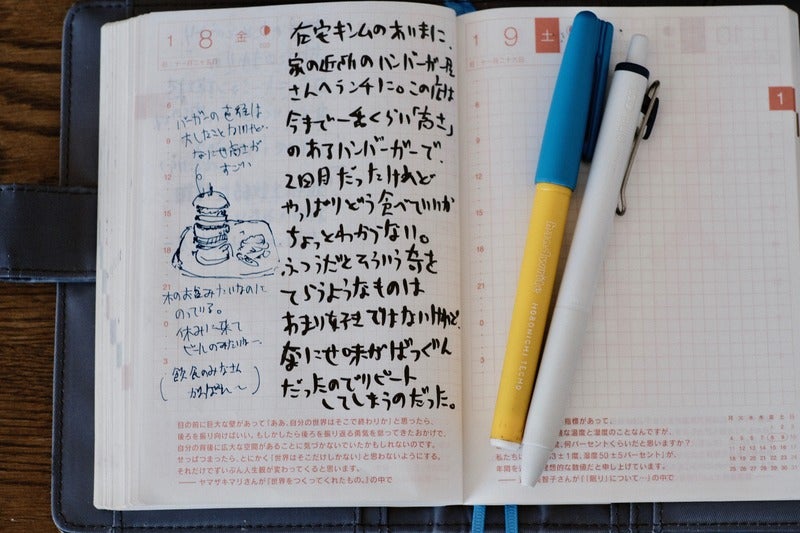 1 8 金
在宅キンムのあいまに、
家の近所のハンバーガー屋
さんへランチに。この店は
今まで一番くらい「高さ」
のあるハンバーガーで、
2回目だったけれど
やっぱりどう食べていいか
ちょっとわからない。
ふつうだとそういう奇を
てらうようなものは
あまり好きではないけれど、
なにせ味がばつぐん
だったのでリピート
してしまうのだった。
バーガーの直径は
大したことないけど、
なにせ高さが
すごい
木のお盆みたいなのに
のっている。
休みに来て
ビールのみたいなー
(飲食のみなさん
がんばれー)
目の前に巨大な壁があって「ああ、自分の世界はそこで終わりか」と思ったら、
後ろを振り向けばいい。もしかしたら後ろを振り返る勇気を奮ってきたおかげで、
自分の背後に広大な空間があることに気づかないでいたかもしれないのです。
せっぱつまったら、とにかく「世界はそこだけしかない」と思わないようにする。
それだけでずいぶん人生観が変わってくると思います。
——ヤマザキマリさんが『世界をつくってくれたもの。』の中で
1 9 土
1
HOBONICHI TECHO
指標があって、
な温度と湿度のことなんですが、
パーセントくらいだと思いますか?
私たち
3±1度、湿度50±5パーセント」が、
年間を
想的な数値だと申し上げています。
智子さんが「〈眠り〉について…」の中で
月 火 水 木 金 土 日
1 2 3
4 5 6 7 8 9 10
11 12 13 14 15 16 17
18 19 20 21 22 23 24
25 26 27 28 29 30 31